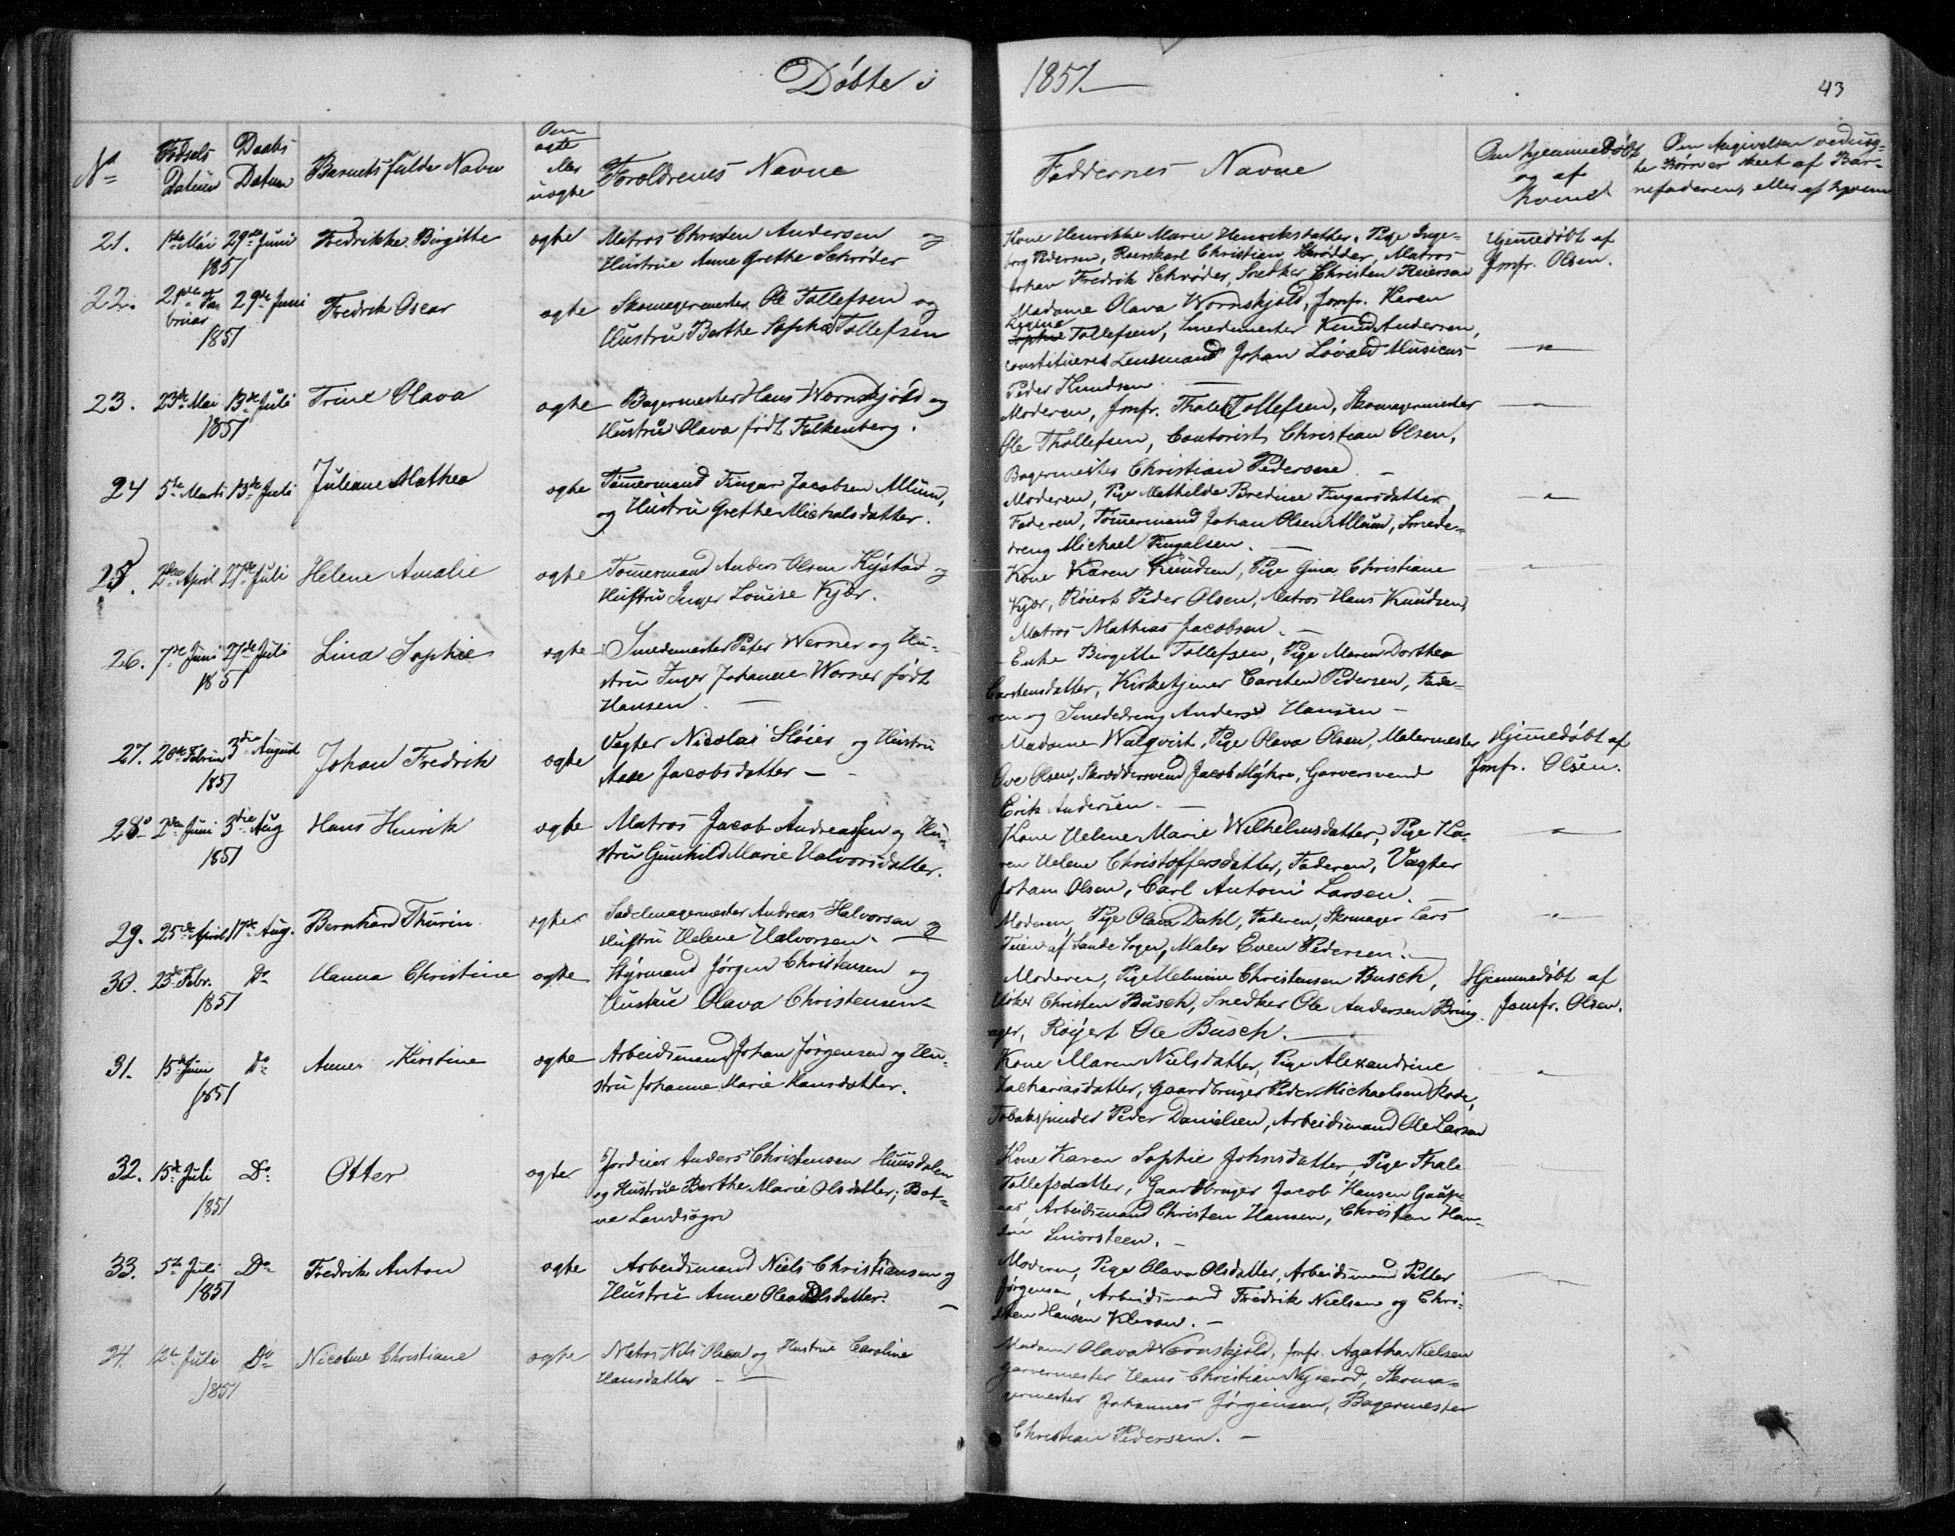 Döbte i 1851
43
No
Fødsels Datum
Daabs Datum
Barnets fulde Navn
Om ægte eller uægte
Forældrenes Navne
Faddernes Navne
Om hjemmedøbt og af hvem
Om Angivelsen veduægte Børn er skeet af Barnefaderen, eller af hvem
21. 1ste Mai 1851 29de Juni Fredrikke Birgitte ægte
Matros Christen Andersen og
Hustrue Anne Grethe Schrøder
Kone Henrikke Marie Henriksdatter, Pige Inge-
borg Pedersen, Christian Schrødder, Matros
Johan Fredrik Schrøder, Snedker Christen Reiersen
Hjemmedøbt af
Jomfr. Olsen.
22. 21de Februar 1851 29de Juni Fredrik Oscar ægte
Skomagermester Ole Tollefsen og
Hustru Berthe Sophie Tollefsen
Madame Olava Wornskjold, Jomfr. Karen
Regine
Sophie Tollefsen, Smedemester Knud Andersen,
constitueret Lensmand Johan Løvald Musicus
Peder Knudsen.
"
23. 23de Mai 1851 13de Juli Trine Olava ægte
Bagermester Hans Wornskjold og
Hustru Olava født Falkenberg.
Moderen, Jomfr. Thale Tollefsen, Skomagermester
Ole Thollefsen, Contorist Christian Olsen,
Bagermester Christian Pedersen. -
"
24 5te Marts 13de Juli Juliane Mathea ægte
Tømermand Fingar Jacobsen Allum,
og Hustru Grethe Michalsdatter.
Moderen, Pige Mathilde Bredine Fingarsdatter,
Faderen, Tømermand Johan Olsen Allum, Smede-
dreng Michael Fingalsen.
"
25. 2den April 27de Juli Helene Amalie ægte
Tømermand Anders Olsen Kystad og
Hustru Inger Louise Kjær.
Kone Karen Knudsen, Pige Gina Christiane
Kjær, Røiert Peder Olsen, Matros Hans Knudsen,
Matros Mathias Jacobsen. -
"
26. 7de Juni 1851 27de Juli Lina Sophie ægte
Smedemester Peter Werner og Hu-
stru Inger Johanne Werner født
Hansen.
- Enke Birgitte Tollefsen, Pige Maren Dorthea
Carstensdatter, Kirketjener Carsten Pedersen, Fade-
ren og Smededreng Anders Hansen -
27. 20de Februar 1851 3die August Johan Fredrik ægte
Vegter Nicolai Sløier og Hustru
Aase Jacobsdatter -
Madame Walqvist, Pige Olava Olsen, Malermester
Ove Olsen, Skræddersvend Jacob Myhre, Garversvend
Erik Andersen. -
Hjemmedøbt af
Jomfr. Olsen.
28. 2den Juni 1851 3die Aug Hans Henrik ægte
Matros Jacob Andreassen og Hu-
stru Gunhild Marie Halvorsdatter.
Kone Helene Marie Wilhelmsdatter, Pige Ka-
ren Helene Christoffersdatter, Faderen, Vægter
Johan Olsen, Carl Antoni Larsen.
"
29. 25de April 17de Aug. Bernhard Thurin ægte
Sadelmagermester Andreas Halvorsen og
Hustru Helene Halvorsen.
Moderen, Pige Olava Dahl, Faderen, Skomager Lars
Teien af Sande Sogn, Maler Even Pedersen.
"
30. 23de Febr. 1851 Do Hanna Christine ægte
Styrmand Jørgen Christensen og
Hustru Olava Christensen
Moderen, Pige Helmine Christensen Busch,
Høker Christen Busch, Snedker Ole Andersen Bring-
ager, Røyert Ole Busch.
Hjemmedøbt af
Jomfr. Olsen.
31. 15de Juni 1851 Do Anne Kirstine ægte
Arbeidsmand Johan Jørgensen og Hu-
stru Johanne Marie Hansdatter.
Kone Maren Nielsdatter, Pige Alexandrine
Zachariasdatter, Gaardbruger Peder Michaelsen Rode,
Tobakspinder Peder Danielsen, Arbeidsmand Ole Larsen
"
32. 15de Juli 1851 Do Otter ægte
Jordeier Anders Christensen Huusdalen
og Hustrue Berthe Marie Olsdatter, Bot-
ne Landsogn
Kone Karen Sophie Johnsdatter, Pige Thale
Tollefsdatter, Gaardbruger Jacob Hansen
Arbeidsmand Christen Hansen, Christen Han-
sen Smørsteen. -
33. 5te Juli 1851 Do Fredrik Anton ægte
Arbeidsmand Niels Christiansen og
Hustrue Anne Olea Olsdatter.
Moderen, Pige Olava Olsdatter, Arbeidsmand Petter
Jørgensen, Arbeidsmand Fredrik Nielsen og Chri-
sten Hansen Klevan. -
34. 12te Juli 1851 Do Nicoline Christiane ægte
Matros Nils Olsen og Hustrue Caroline
Hansdatter -
Madam Olava Wornskjold, Jomfr. Agathe Nielsen
Garvermester Hans Christian Nyerød, Skoma-
germester Johannes Jørgensen, Bagermester
Christian Pedersen. -